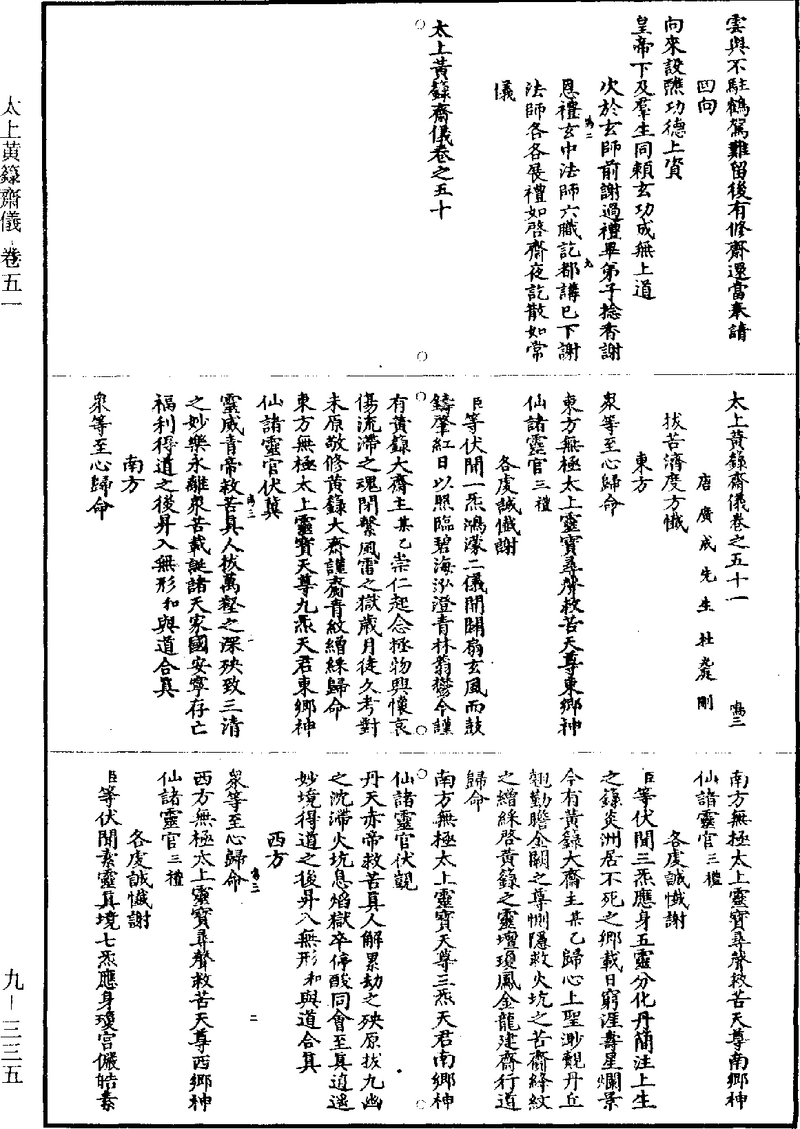 雲輿不駐鶴駕難留後有修齋還當奉請
回向
向來設醮功德上資
皇帝下及羣生同賴玄功成無上道
次於玄師前謝過禮畢弟子捻香謝
恩禮玄中法師六職訖都講已下謝
法師各各展禮如啓齋夜訖散如常
儀
太上黃籙齋儀卷之五十
太上黃籙齋儀卷之五十一
唐廣成先生杜光庭刪
拔苦濟度方懺
東方
衆等至心歸命
東方無極太上靈寶尋聲救苦天尊東鄉神
仙諸靈官三禮
各虔誠懺謝
臣等伏聞一炁鴻濛二儀開闢扇玄風而鼓
鑄肇紅日以照臨碧海泓澄青林蓊鬱今謹
有黃籙大齋主某乙崇仁起念拯物興懷哀
傷流滯之魂閉繫風雷之獄歲月徒久考對
未原敬修黃籙大齋謹齎青紋繒綵歸命
東方無極太上靈寶天尊九炁天君東鄉神
仙諸靈官伏冀
靈威青帝救苦真人拔萬壑之深殃致三清
之妙樂永離衆苦載誕諸天家國安寧存亡
福利得道之後昇入無形和與道合真
南方
衆等至心歸命
南方無極太上靈寶尋聲救苦天尊南鄉神
仙諸靈官三禮
各虔誠懺謝
臣等伏聞三炁應身五靈分化丹簡注上生
之籙炎洲居不死之鄉載日窮涯壽星爛景
今有黃籙大齋主某乙歸心上聖渺覿丹丘
翹勤瞻金闕之尊惻隱救火坑之苦齋絳紋
之繒綵啓黃籙之靈壇瓊鳳金龍建齋行道
歸命
南方無極太上靈寶天尊三炁天君南鄉神
仙諸靈官伏覬
丹天赤帝救苦真人解累劫之殃原拔九幽
之沈滯火坑息焰獄卒停酸同會至真逍遥
妙境得道之後昇入無形和與道合真
西方
衆等至心歸命
西方無極太上靈寶尋聲救苦天尊西鄉神
仙諸靈官三禮
各虔誠懺謝
臣等伏聞素靈真境七炁應身瓊宫儼皓素
太上黃籙齋儀 卷五一
九－三三五